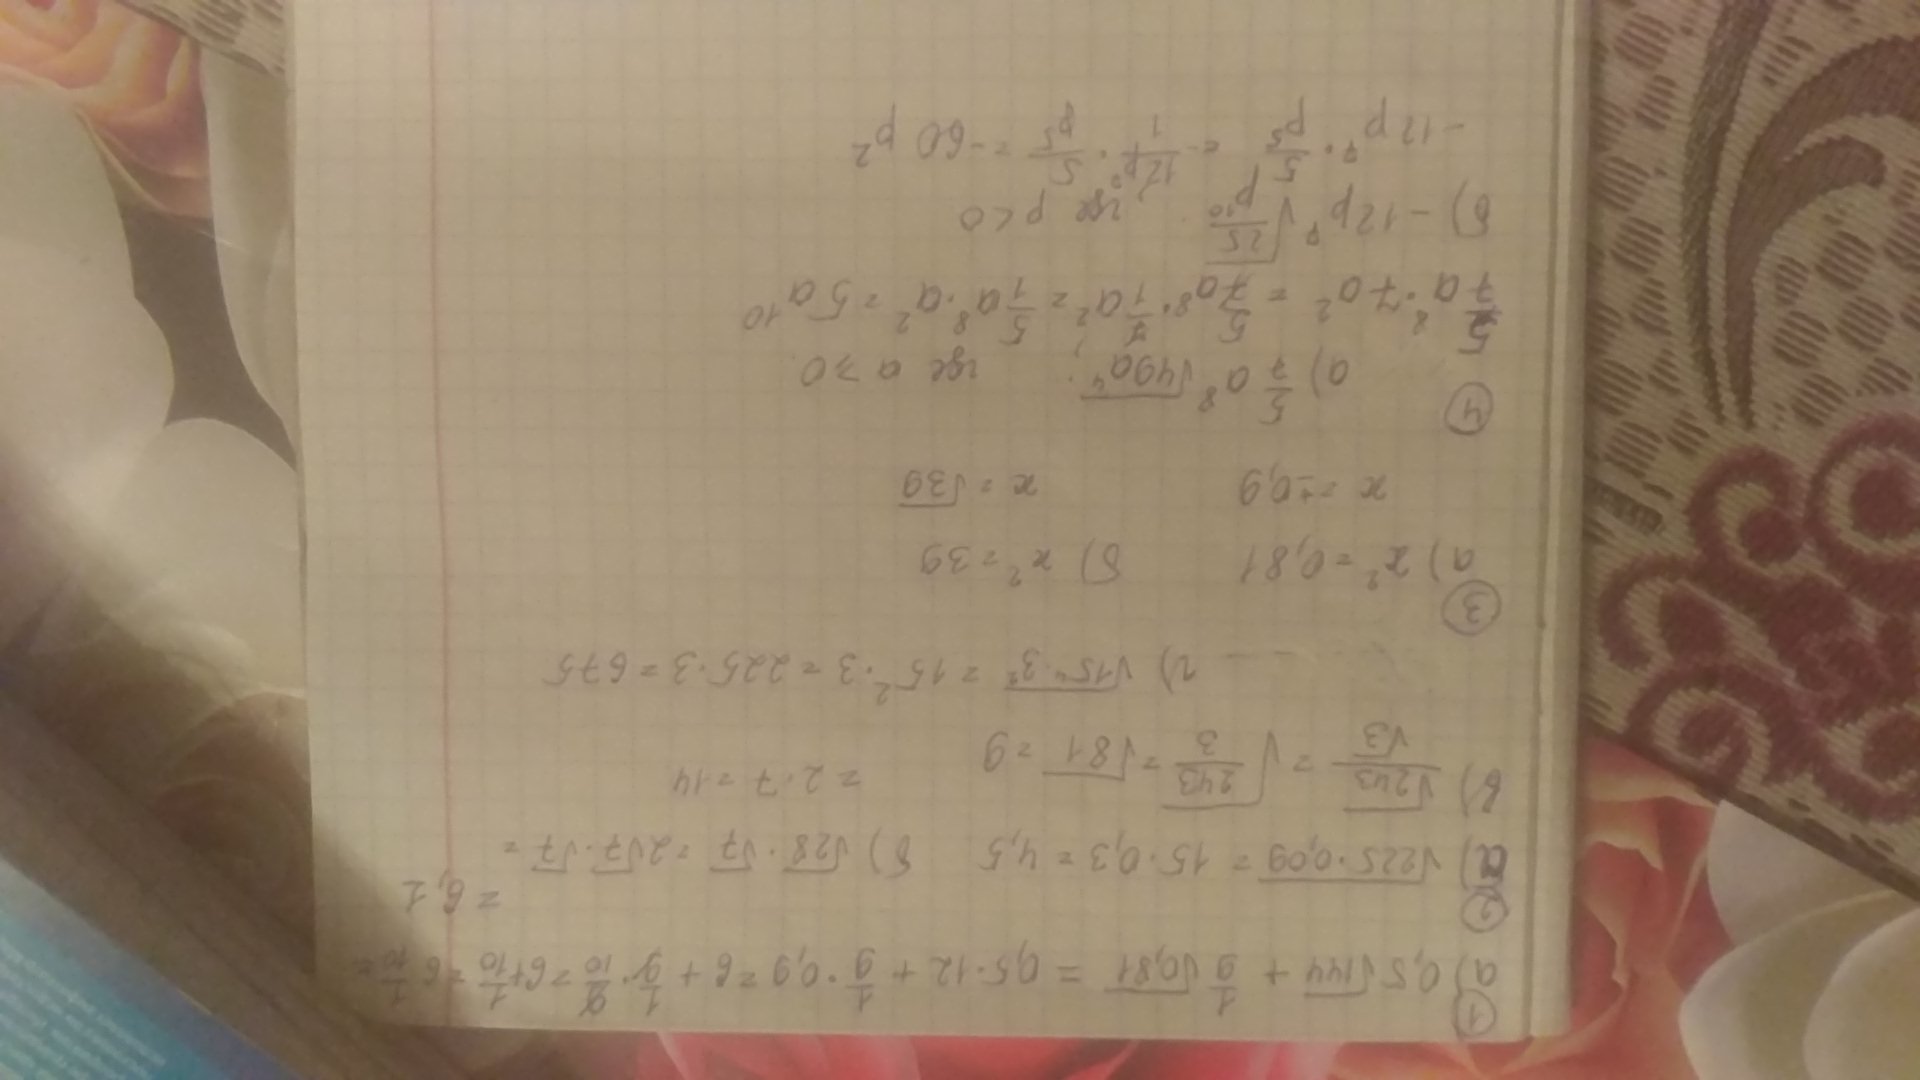 ①
а) 0,5√144 + 1/9 √0,81 = 0,5·12 + 1/9 · 0,9 = 6 + 1/9 · 9/10 = 6 + 1/10 = 6 1/10 =
= 6,1
②
а) √225·0,09 = 15·0,3 = 4,5 б) √28 · √7 = 2√7 · √7 =
= 2·7 = 14
в) √243/√3 = √243/3 = √81 = 9
г) √15⁴·3² = 15²·3 = 225·3 = 675
③
а) x² = 0,81 б) x² = 39
x = ±0,9 x = √39
④
а) 5/7 a⁸ √49a⁴, где a ≥ 0
5/7 a⁸ · 7a² = 5/7 a⁸ · 7/1 a² = 5/1 a⁸ · a² = 5a¹⁰
б) -12p⁷ √25/p¹⁰, где p < 0
-12p⁷ · 5/p⁵ = - 12p⁷/1 · 5/p⁵ = -60 p²